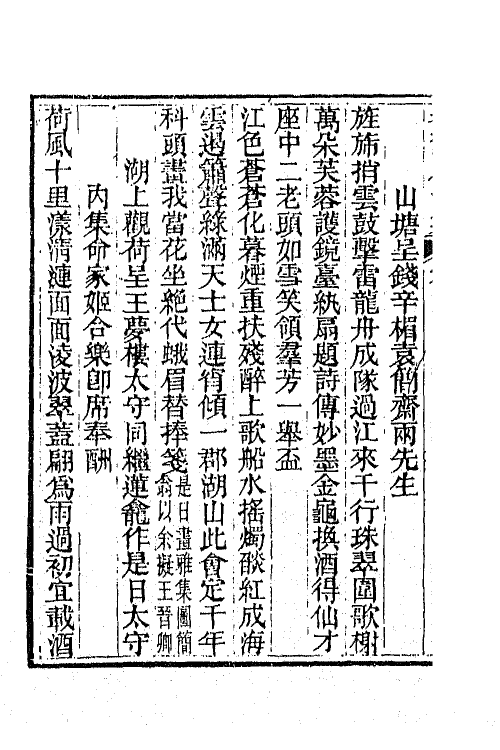 山塘呈錢辛楣袁簡齋兩先生
旌斾捎雲鼓擊雷龍舟成隊過江來千行珠翠圍歌榭
萬朵芙蓉護鏡臺紈扇題詩傳妙墨金龜換酒得仙才
座中二老頭如雪笑領羣芳一舉盃
江色蒼蒼化暮煙重扶殘醉上歌船水搖燭燄紅成海
雲遏簫聲綠滿天士女連宵傾一郡湖山此會定千年
科頭畫我當花坐絕代蛾眉替捧箋是日畫雅集圖簡
翁以余擬王晉卿
湖上觀荷呈王夢樓太守同繼蓮龕作是日太守
內集命家姬合樂卽席奉酬
荷風十里漾清漣面面凌波翠蓋翩爲雨過初宜載酒